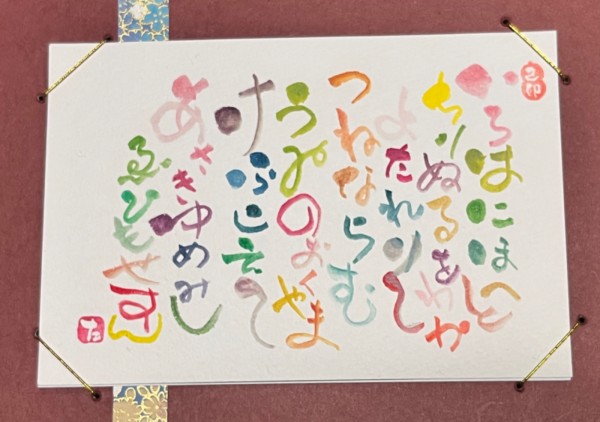 いろはにほへと
ちりぬるをわか
よたれそ
つねならむ
うゐのおくやま
けふこえて
あさきゆめみし
ゑひもせすん
た